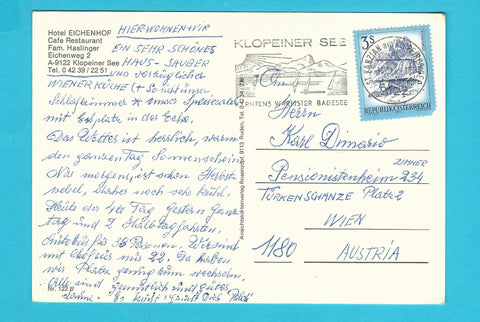 Hotel EICHENHOF
Cafe Restaurant
Fam. Haslinger
Eichenweg 2
A-9122 Klopeiner See
Tel. 0 42 39 / 22 51
HIER WOHNEN WIR
EIN SEHR SCHÖNES
HAUS - SAUBER
und vorzüglicher
WIENER KÜCHE (+
Schlafzimmer * unser Speisesaal
mit in der Ecke.
Das Wetter ist herrlich, warm
den ganzen Tag Sonnenschein
Nur morgens ist schon Herbst-
nebel, noch sehr kühl.
Heute der 4te Tag Gestern Ganz-
tag und 2 Halbtagfahrten.
Autobus für 36 Personen. Wir sind
mit 22. Da haben
wir Platz genug zum wechseln.
Alle sind gemütlich und guter
Laune. Es
Nr. 122 p
Ansichtskartenverlag Rosenhof, 9113 Ruden, Tel. 0 42 34 / 2
KLOPEINER SEE
KÄRNTENS WÄRMSTER BADESEE
3 S
REPUBLIK ÖSTERREICH
Herrn
Karl Dimario
ZIMMER
Pensionistenheim 234
TÜRKENSCHANZE Platz 2
WIEN
1180
AUSTRIA